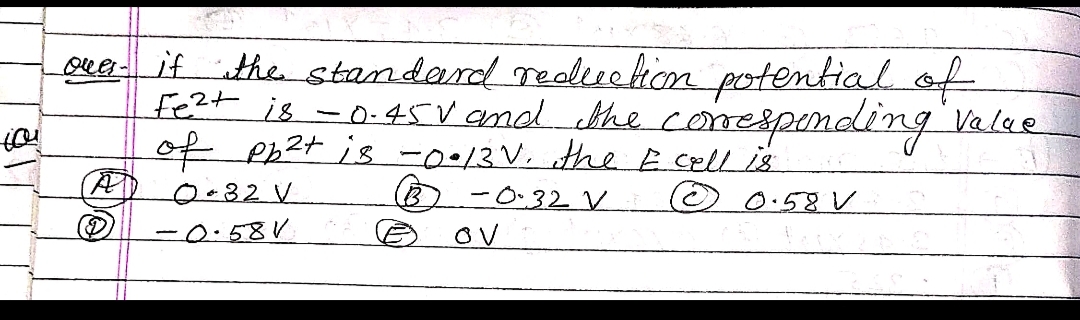 Ques- if the standard reduction potential of
Fe2+ is -0.45 V and the corresponding Value
of Pb2+ is -0.13 V. the E cell is
(A) 0.32 V (B) -0.32 V (C) 0.58 V
(D) -0.58 V (E) 0V